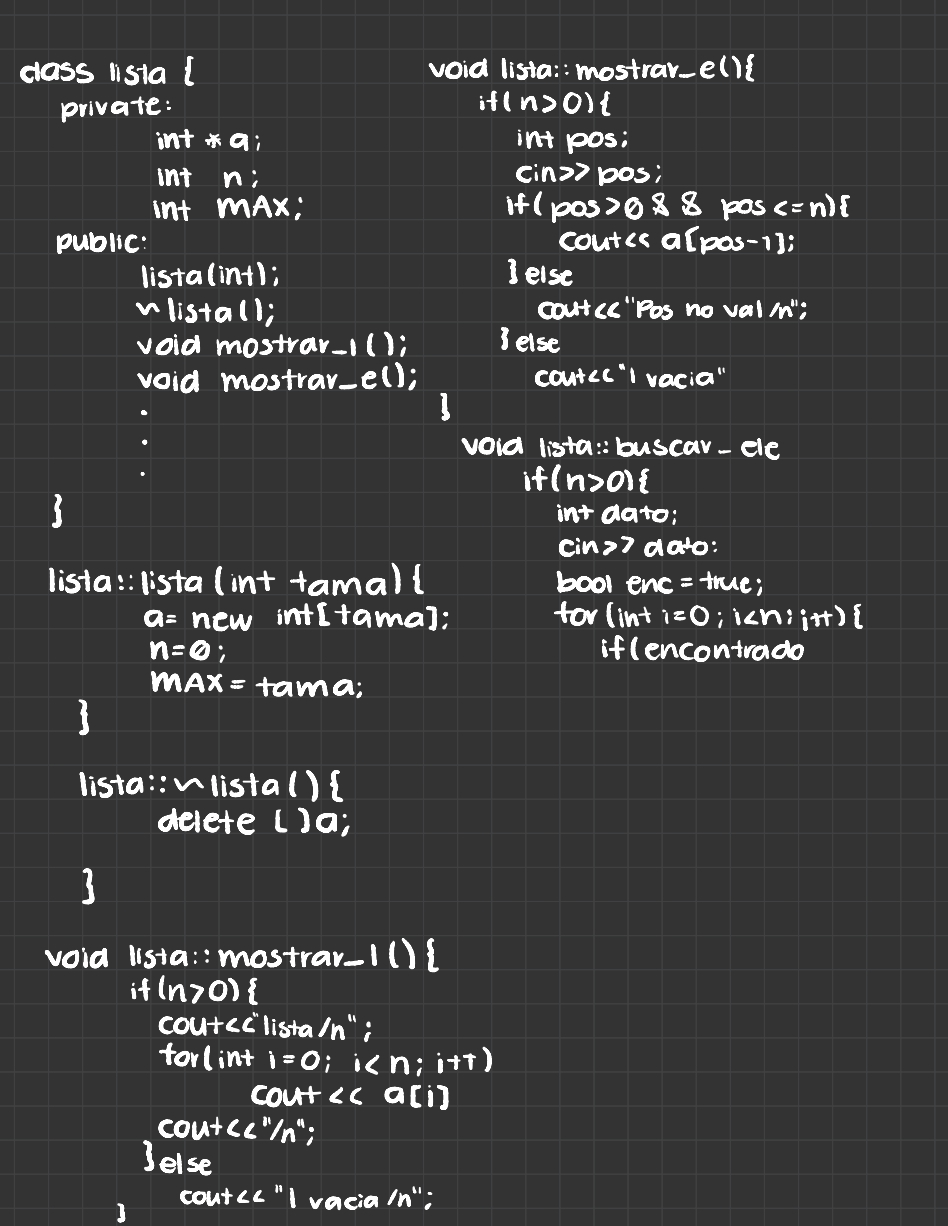 class lista {
private:
int *a;
int n;
int MAX;
public:
lista(int);
~lista();
void mostrar_l();
void mostrar_e();
.
.
.
}
lista::lista(int tama){
a= new int[tama];
n=0;
MAX= tama;
}
lista::~lista(){
delete []a;
}
void lista::mostrar_l(){
if(n>0){
cout<<"lista/n";
for(int i=0; i<n; i++)
cout<< a[i]
cout<<"/n";
}else
cout<< "l vacia/n";
}
void lista::mostrar_e(){
if(n>0){
int pos;
cin>>pos;
if(pos>0 && pos<=n){
cout<< a[pos-1];
}else
cout<<"Pos no val/n";
}else
cout<<"l vacia"
}
void lista::buscar_ele
if(n>0){
int dato;
cin>> dato:
bool enc=true;
for(int i=0; i<n; i++){
if(encontrado